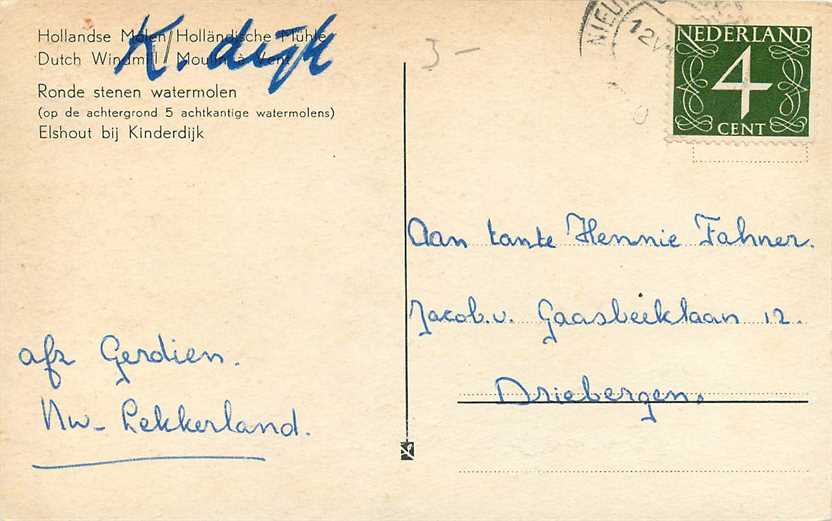 Hollandse Molen/Holländische Mühle
Dutch Windmill/Moulin à Vent
K. dijk
Ronde stenen watermolen
(op de achtergrond 5 achtkantige watermolens)
Elshout bij Kinderdijk
3-
NEDERLAND
4
CENT
Aan tante Hennie Fahner.
Jacob.v. Gaasbeeklaan 12.
Driebergen.
afz Gerdien.
Nw-Lekkerland.